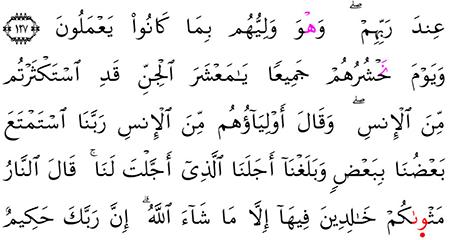 عِندَ رَبِّهِمْ ۖ وَهْوَ وَلِيُّهُم بِمَا كَانُوا۟ يَعْمَلُونَ ﴿١٢٧﴾
وَيَوْمَ نَحْشُرُهُمْ جَمِيعًا يَٰمَعْشَرَ ٱلْجِنِّ قَدِ ٱسْتَكْثَرْتُم
مِّنَ ٱلْإِنسِ ۖ وَقَالَ أَوْلِيَآؤُهُم مِّنَ ٱلْإِنسِ رَبَّنَا ٱسْتَمْتَعَ
بَعْضُنَا بِبَعْضٍ وَبَلَغْنَآ أَجَلَنَا ٱلَّذِىٓ أَجَّلْتَ لَنَا ۚ قَالَ ٱلنَّارُ
مَثْوىٰكُمْ خَٰلِدِينَ فِيهَآ إِلَّا مَا شَآءَ ٱللَّهُ ۗ إِنَّ رَبَّكَ حَكِيمٌ